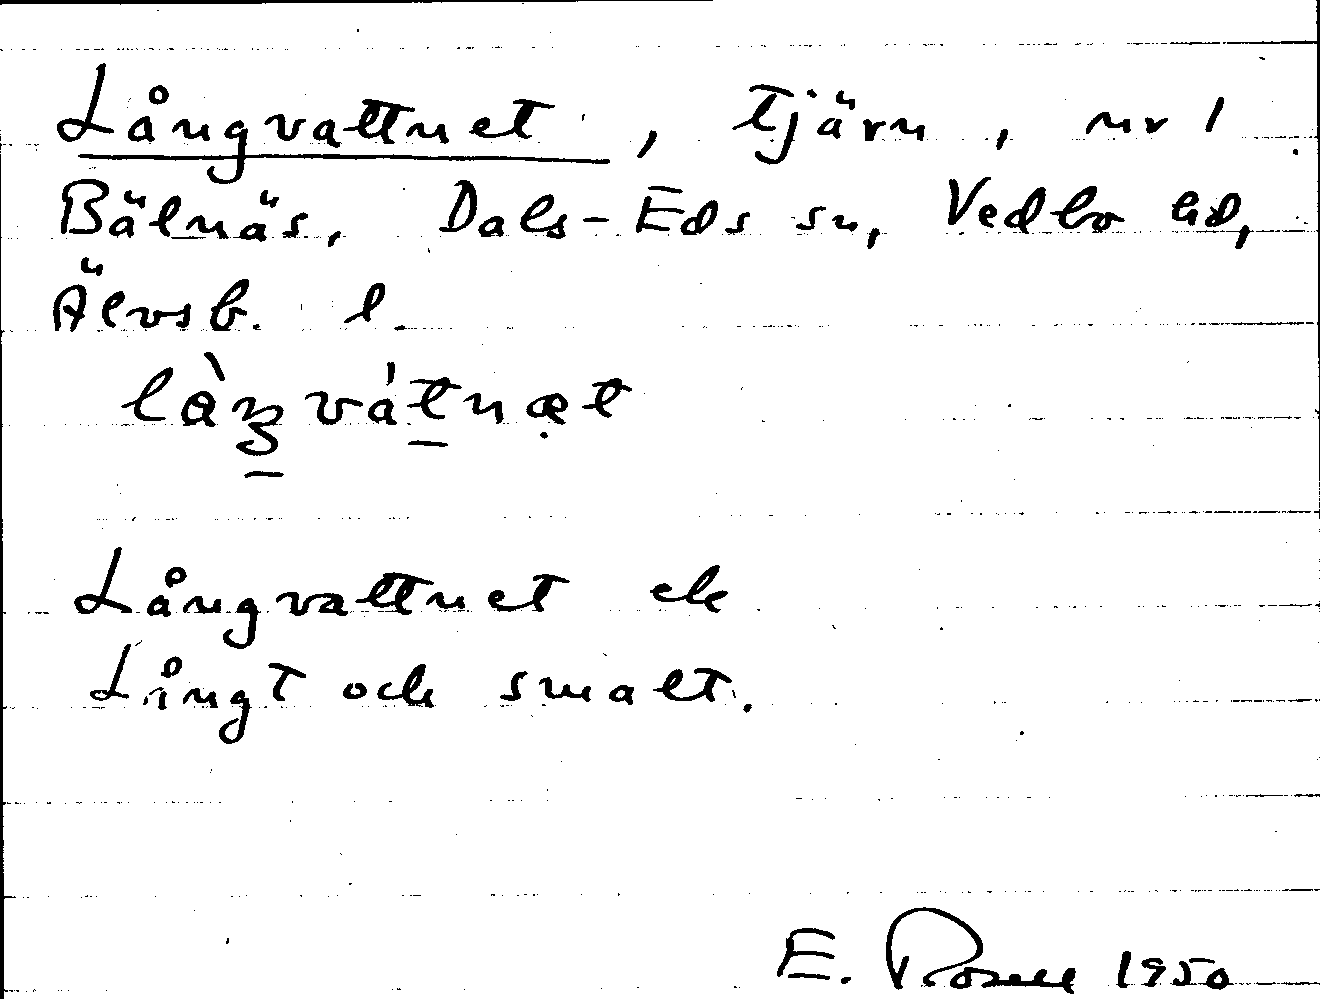 Långvattnet, tjärn, nr 1
Bälnäs, Dals-Eds sn, Vedbo hd,
Älvsb. l.
làŋvátnæt
Långvattnet ek
Långt och smalt.
E. Rosell 1950